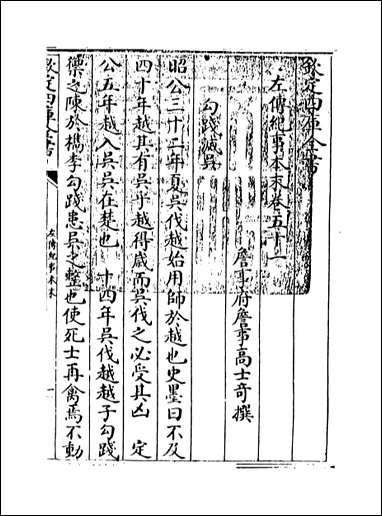 欽定四庫全書
左傳紀事本末卷五十一
詹事府詹事高士奇撰
勾踐滅吳
昭公三十二年夏吳伐越始用師於越也史墨曰不及
四十年越其有吳乎越得歲而吳伐之必受其凶　定
公五年越入吳吳在楚也　十四年吳伐越越子勾踐
禦之陳於檇李勾踐患吳之整也使死士再禽焉不動
欽定四庫全書
左傳紀事本末
一